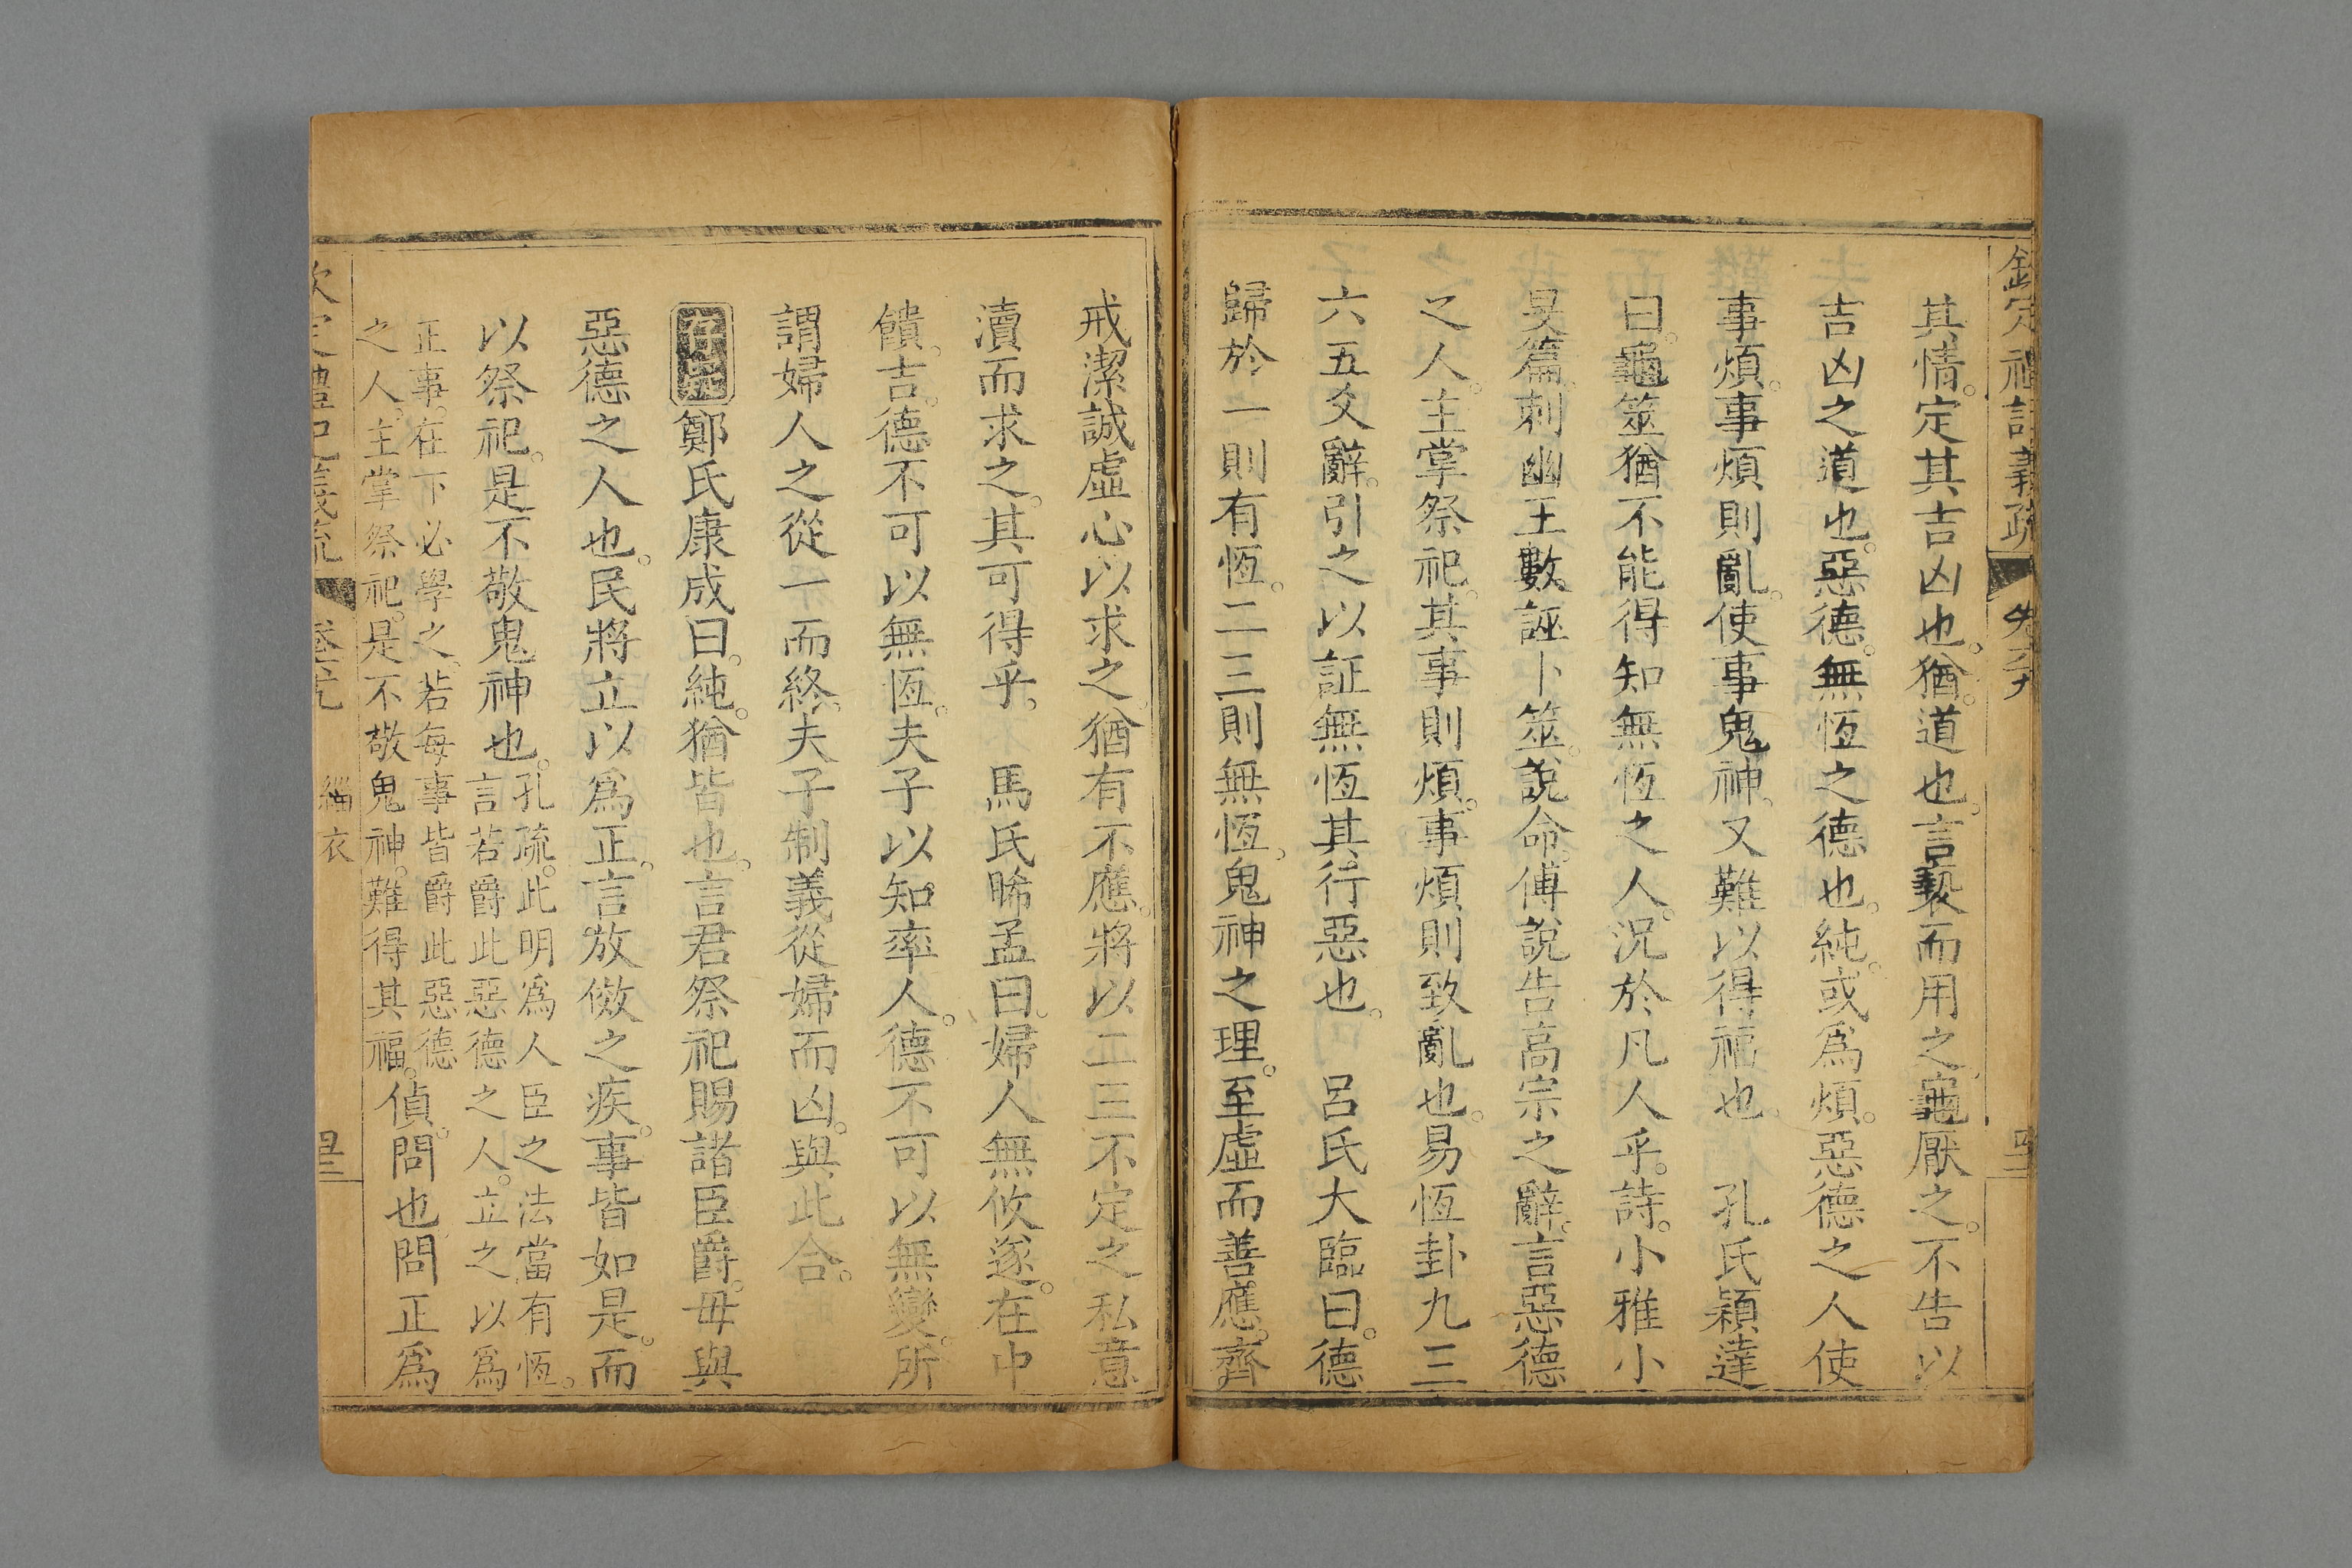 欽定禮記義疏 卷六十九 四三
其情。定其吉凶也。猶。道也。言褻而用之。龜厭之。不告以
吉凶之道也。惡德。無恆之德也。純。或爲煩。惡德之人使
事煩。事煩則亂。使事鬼神。又難以得福也。 孔氏穎達
曰。龜筮猶不能得知無恆之人。況於凡人乎。詩。小雅小
旻篇。刺幽王數誣卜筮。說命。傅說告高宗之辭。言惡德
之人。主掌祭祀。其事則煩。事煩則致亂也。易恆卦九三
六五爻辭。引之以証無恆其行惡也。 呂氏大臨曰。德
歸於一則有恆。二三則無恆。鬼神之理。至虛而善應。齊
戒潔誠虛心以求之。猶有不應。將以二三不定之私意
瀆而求之。其可得乎。 馬氏晞孟曰。婦人無攸遂。在中
饋。吉。德不可以無恆。夫子以知率人。德不可以無變。所
謂婦人之從一而終。夫子制義從婦而凶。與此合。
存疑 鄭氏康成曰。純。猶皆也。言君祭祀賜諸臣爵。毋與
惡德之人也。民將立以爲正。言放傚之疾。事皆如是。而
以祭祀。是不敬鬼神也。孔疏。此明爲人臣之法當有恆。
言若爵此惡德之人。立之以爲
正事。在下必學之。若每事皆爵此惡德
之人。主掌祭祀。是不敬鬼神。難得其福。偵。問也。問正爲
欽定禮記義疏 卷六十九 緇衣 四三